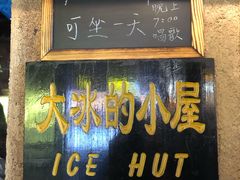 可坐一天
晚上
7:00
唱歌
大冰的小屋
ICE HUT